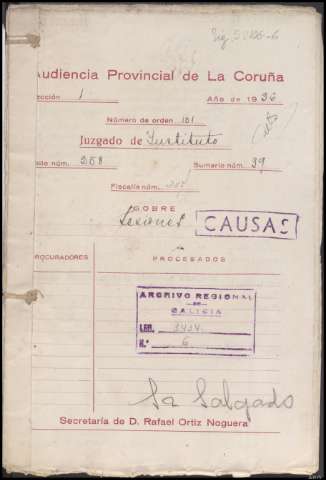 Audiencia Provincial de La Coruña
ección 1 Año de 1936
Número de orden 101
Juzgado de Instituto
núm. 258 Sumario núm. 39
Fiscalía núm.
SOBRE
Lesiones CAUSAS
PROCURADORES PROCESADOS
ARCHIVO REGIONAL
DE
GALICIA
LEG. 3434
N.º 6
Sr Salgado
Secretaría de D. Rafael Ortiz Noguera